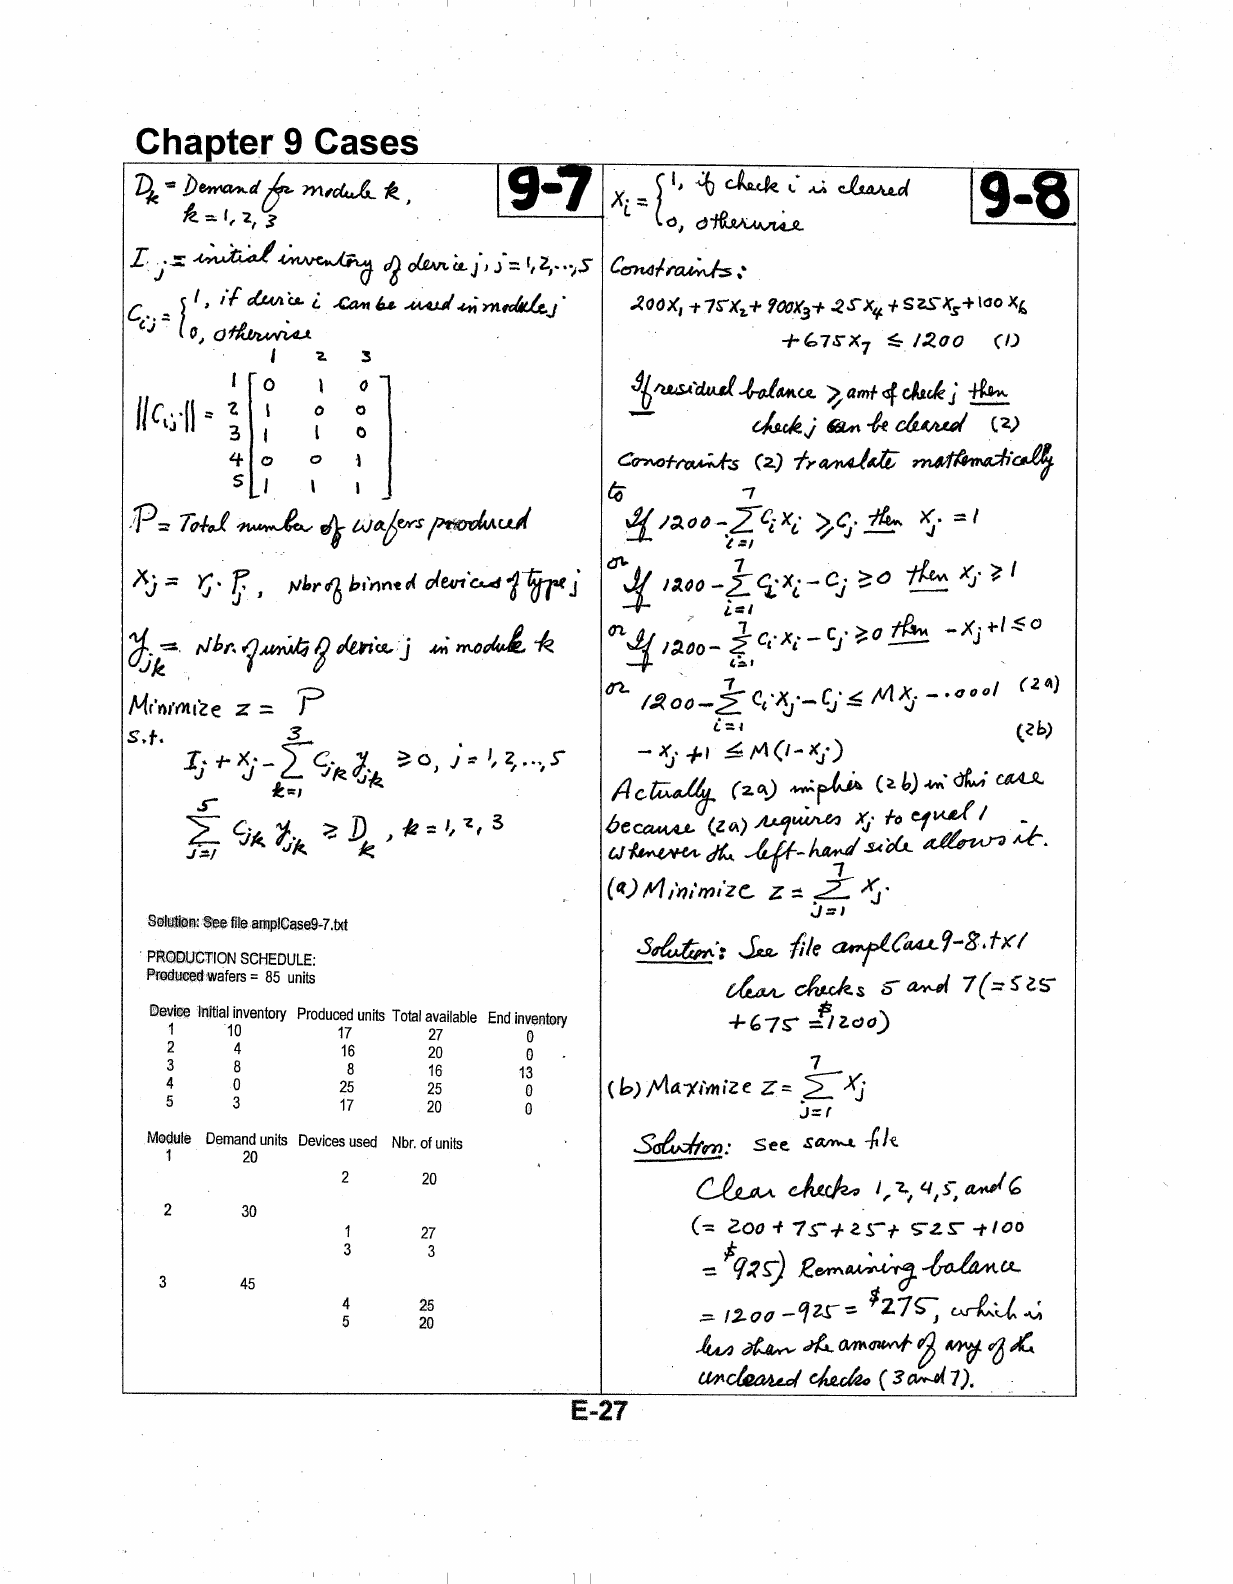 Chapter 9 Cases
9-7
D_k = Demand for module k,
k = 1, 2, 3
I_j = initial inventory of device j, j = 1, 2, ..., 5
C_ij = { 1, if device i can be used in module j
0, otherwise
1 2 3
||C_ij|| =
1 [ 0 1 0 ]
2 1 0 0
3 1 1 0
4 0 0 1
5 [ 1 1 1 ]
P = Total number of wafers produced
X_j = r_j · P_j, Nbr of binned devices of type j
y_jk = Nbr. of units of device j in module k
Minimize z = P
s.t.
I_j + X_j - Σ_{k=1}^{3} C_jk y_jk ≥ 0, j = 1, 2, .., 5
Σ_{j=1}^{5} C_jk y_jk ≥ D_k, k = 1, 2, 3
Solution: See file amplCase9-7.txt
PRODUCTION SCHEDULE:
Produced wafers = 85 units
Device Initial inventory Produced units Total available End inventory
1 10 17 27 0
2 4 16 20 0
3 8 8 16 13
4 0 25 25 0
5 3 17 20 0
Module Demand units Devices used Nbr. of units
1 20
2 20
2 30
1 27
3 3
3 45
4 25
5 20
9-8
X_i = { 1, if check i is cleared
0, otherwise
Constraints:
200X_1 + 75X_2 + 900X_3 + 25X_4 + 525X_5 + 100X_6
+ 675X_7 ≤ 1200 (1)
If residual balance ≥ amt of check j then
check j can be cleared (2)
Constraints (2) translate mathematically
to
If 1200 - Σ_{i=1}^{7} C_i X_i ≥ C_j then X_j = 1
or If 1200 - Σ_{i=1}^{7} C_i X_i - C_j ≥ 0 then X_j ≥ 1
or If 1200 - Σ_{i=1}^{7} C_i X_i - C_j ≥ 0 then -X_j + 1 ≤ 0
or 1200 - Σ_{i=1}^{7} C_i X_j - C_j ≤ M X_j - .0001 (2a)
-X_j + 1 ≤ M(1 - X_j) (2b)
Actually (2a) implies (2b) in this case
because (2a) requires X_j to equal 1
whenever the left-hand side allows it.
(a) Minimize z = Σ_{j=1}^{7} X_j
Solution: See file amplCase9-8.txt
clear checks 5 and 7 (= 525
+ 675 = $1200)
(b) Maximize z = Σ_{j=1}^{7} X_j
Solution: see same file
Clear checks 1, 2, 4, 5, and 6
(= 200 + 75 + 25 + 525 + 100
= $925) Remaining balance
= 1200 - 925 = $275, which is
less than the amount of any of the
uncleared checks (3 and 7).
E-27